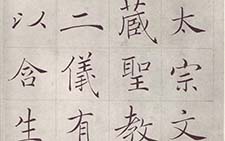 太宗文
藏聖教
二儀有
以含生